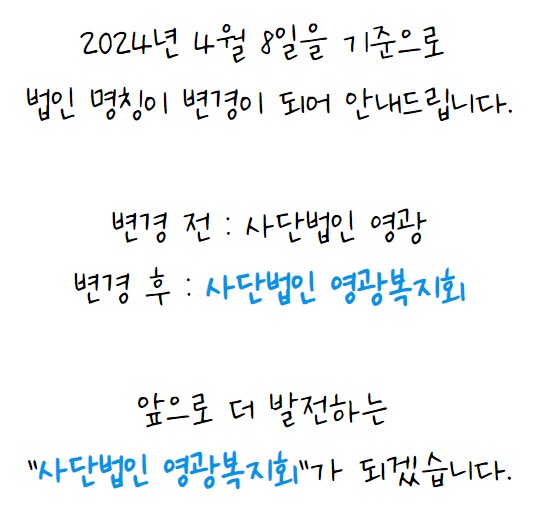 2024년 4월 8일을 기준으로
법인 명칭이 변경이 되어 안내드립니다.
변경 전 : 사단법인 영광
변경 후 : 사단법인 영광복지회
앞으로 더 발전하는
"사단법인 영광복지회"가 되겠습니다.